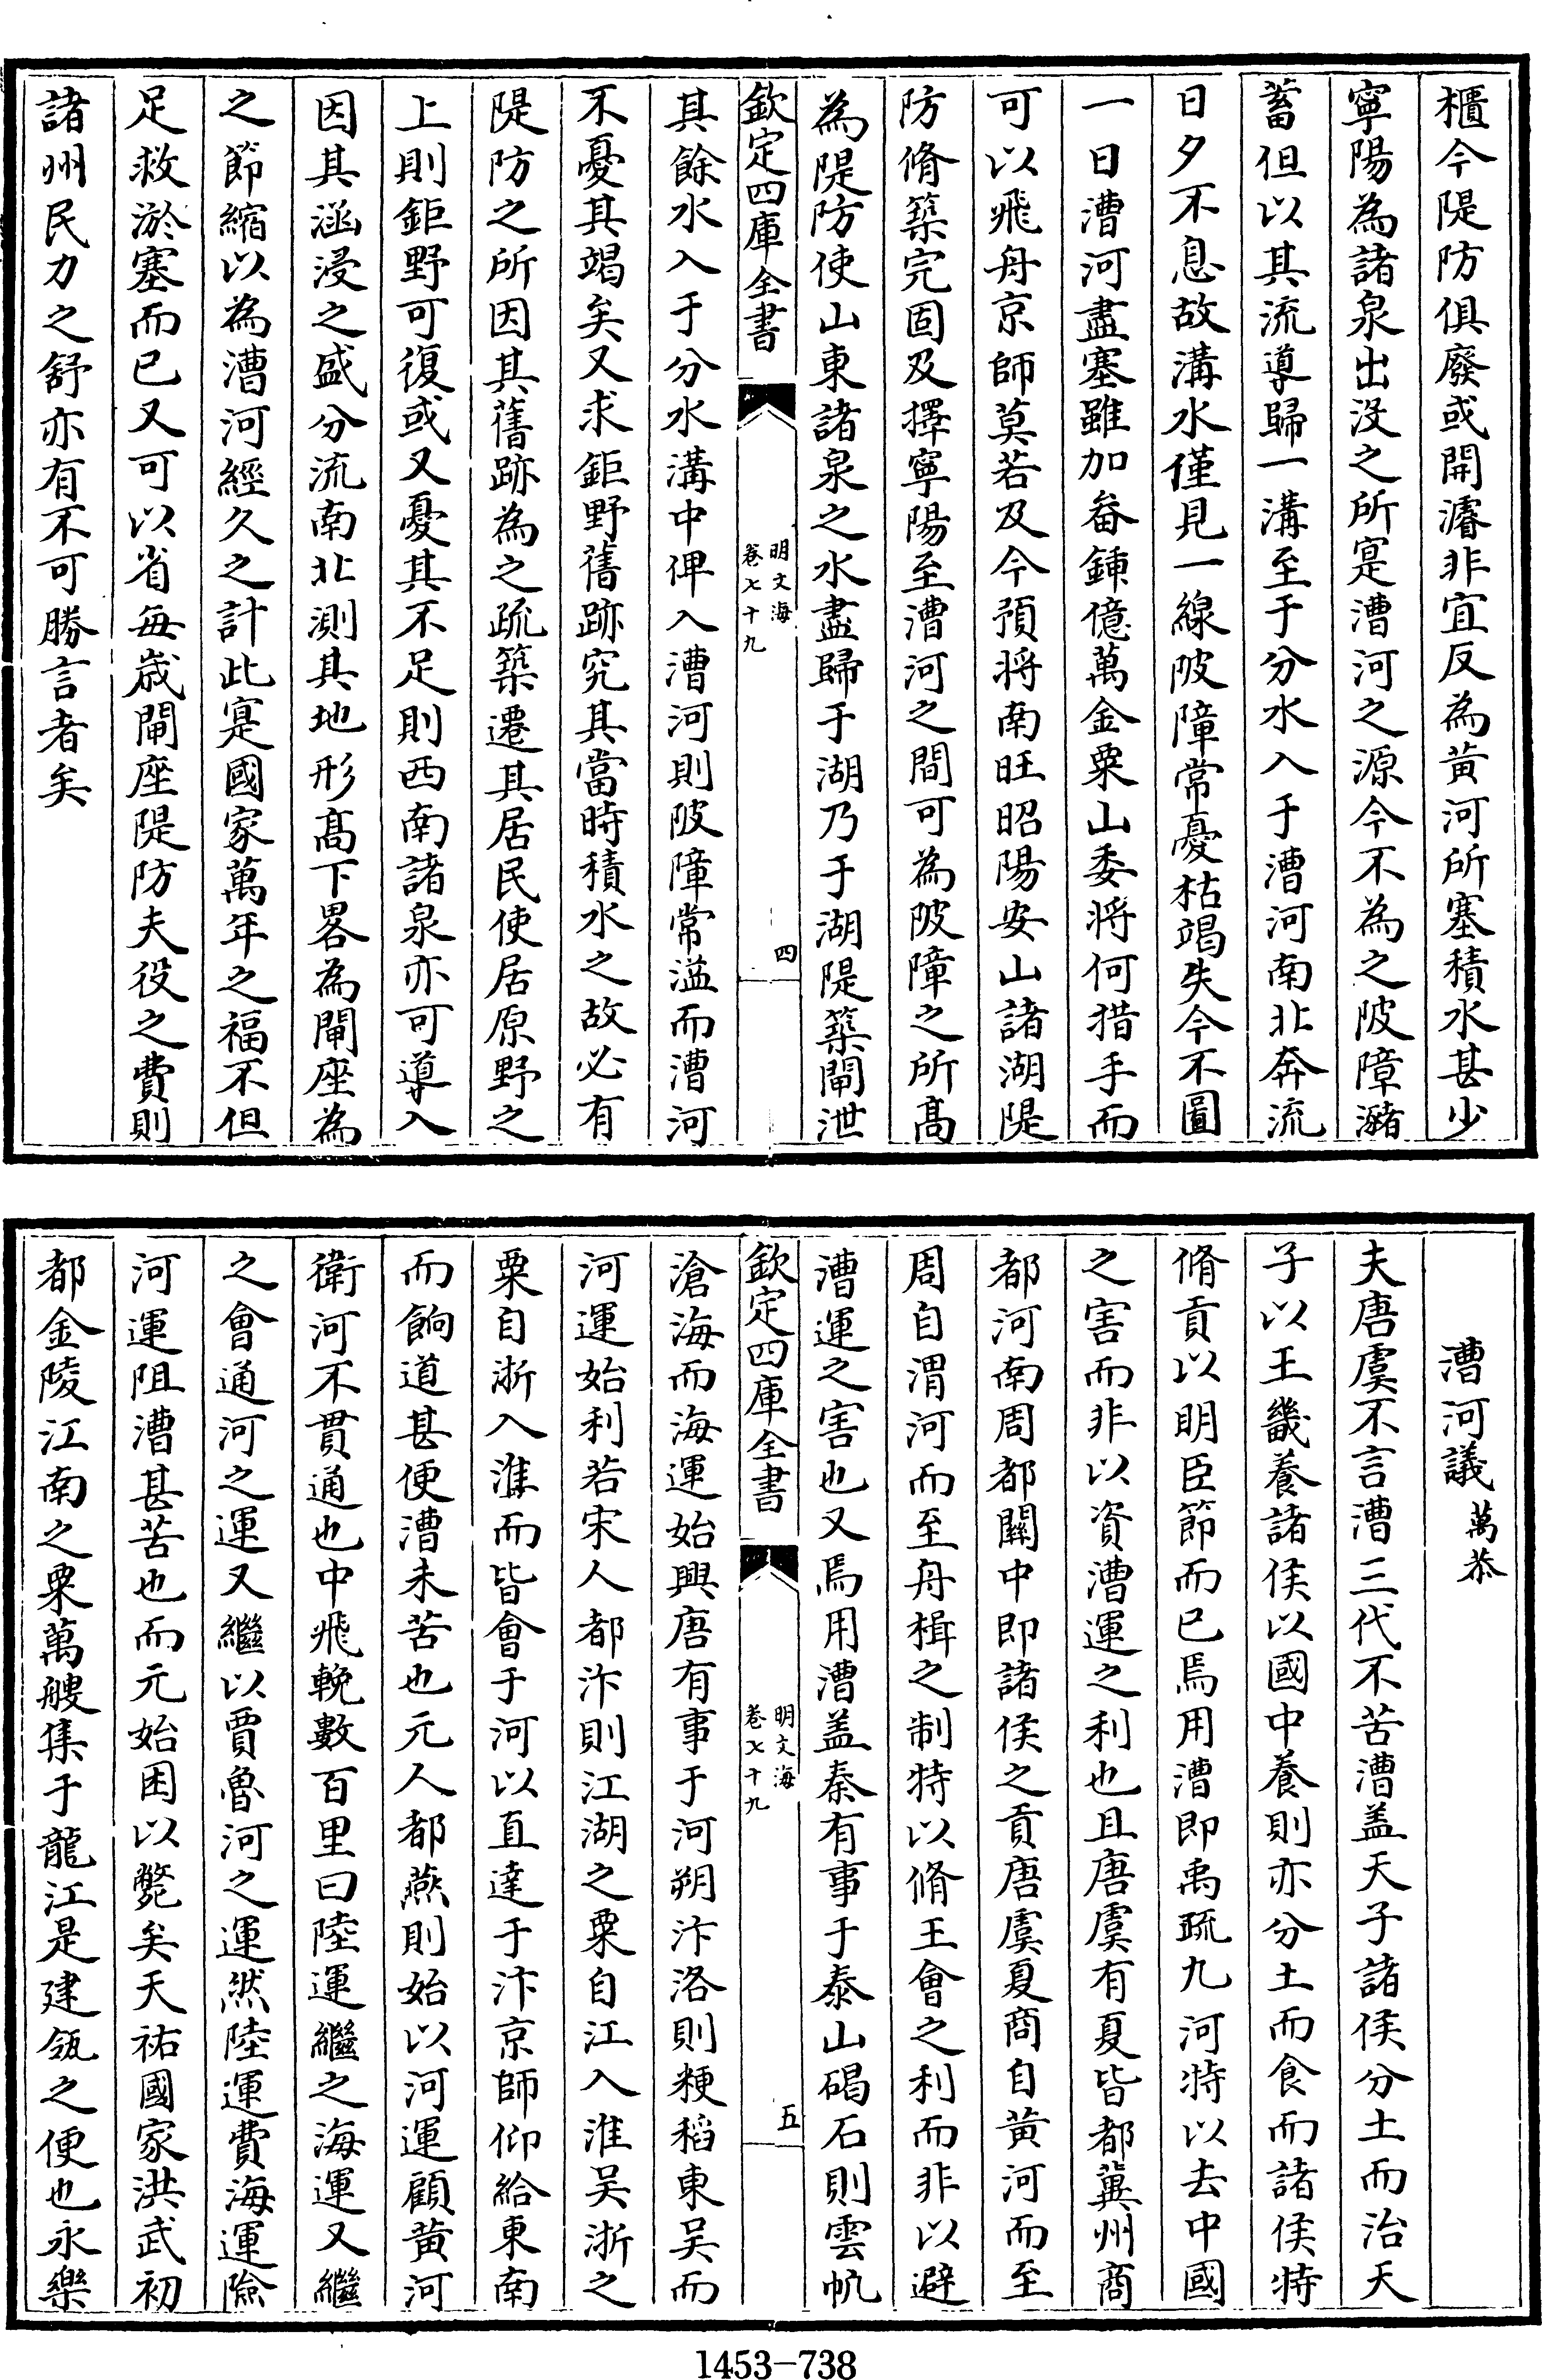 櫃今隄防俱廢或開濬非宜反為黃河所塞積水甚少
寧陽為諸泉出没之所寔漕河之源今不為之陂障瀦
蓄但以其流導歸一溝至于分水入于漕河南北奔流
日夕不息故溝水僅見一線陂障常憂枯竭失今不圖
一日漕河盡塞雖加畚鍤億萬金粟山委將何措手而
可以飛舟京師莫若及今預将南旺昭陽安山諸湖隄
防脩築完固及擇寧陽至漕河之間可為陂障之所髙
為隄防使山東諸泉之水盡歸于湖乃于湖隄築閘泄
欽定四庫全書
明文海
卷七十九
四
其餘水入于分水溝中俾入漕河則陂障常溢而漕河
不憂其竭矣又求鉅野舊跡究其當時積水之故必有
隄防之所因其舊跡為之疏築遷其居民使居原野之
上則鉅野可復或又憂其不足則西南諸泉亦可導入
因其涵浸之盛分流南北測其地形髙下畧為閘座為
之節縮以為漕河經久之計此寔國家萬年之福不但
足救淤塞而已又可以省每歲閘座隄防夫役之費則
諸州民力之舒亦有不可勝言者矣
漕河議 萬恭
夫唐虞不言漕三代不苦漕盖天子諸侯分土而治天
子以王畿養諸侯以國中養則亦分土而食而諸侯特
脩貢以明臣節而已焉用漕即禹疏九河特以去中國
之害而非以資漕運之利也且唐虞有夏皆都冀州商
都河南周都關中即諸侯之貢唐虞夏商自黃河而至
周自渭河而至舟楫之制特以脩王會之利而非以避
漕運之害也又焉用漕盖秦有事于泰山碣石則雲帆
欽定四庫全書
明文海
卷七十九
五
滄海而海運始興唐有事于河朔汴洛則粳稻東吴而
河運始利若宋人都汴則江湖之粟自江入淮吴浙之
粟自浙入淮而皆會于河以直達于汴京師仰給東南
而餉道甚便漕未苦也元人都燕則始以河運顧黃河
衛河不貫通也中飛輓數百里曰陸運繼之海運又繼
之會通河之運又繼以賈魯河之運然陸運費海運險
河運阻漕甚苦也而元始困以斃矣天祐國家洪武初
都金陵江南之粟萬艘集于龍江是建瓴之便也永樂
1453-738